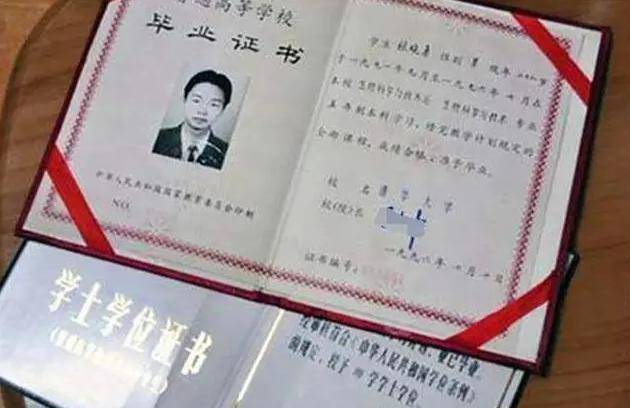 普通高等学校
毕业证书
中华人民共和国国家教育委员会印制
NO.
学生 张晓勇 性别 男 现年
于一九九一年九月至一九九六年七月在
本校 生物科学与技术系 生物科学与技术 专业
五年制本科学习，修完教学计划规定的
全部课程，成绩合格，准予毕业。
校 名 清华大学
校(院)长
一九九六年七月十日
证书编号:
学士学位证书
的规定，授予 理 学学士学位。